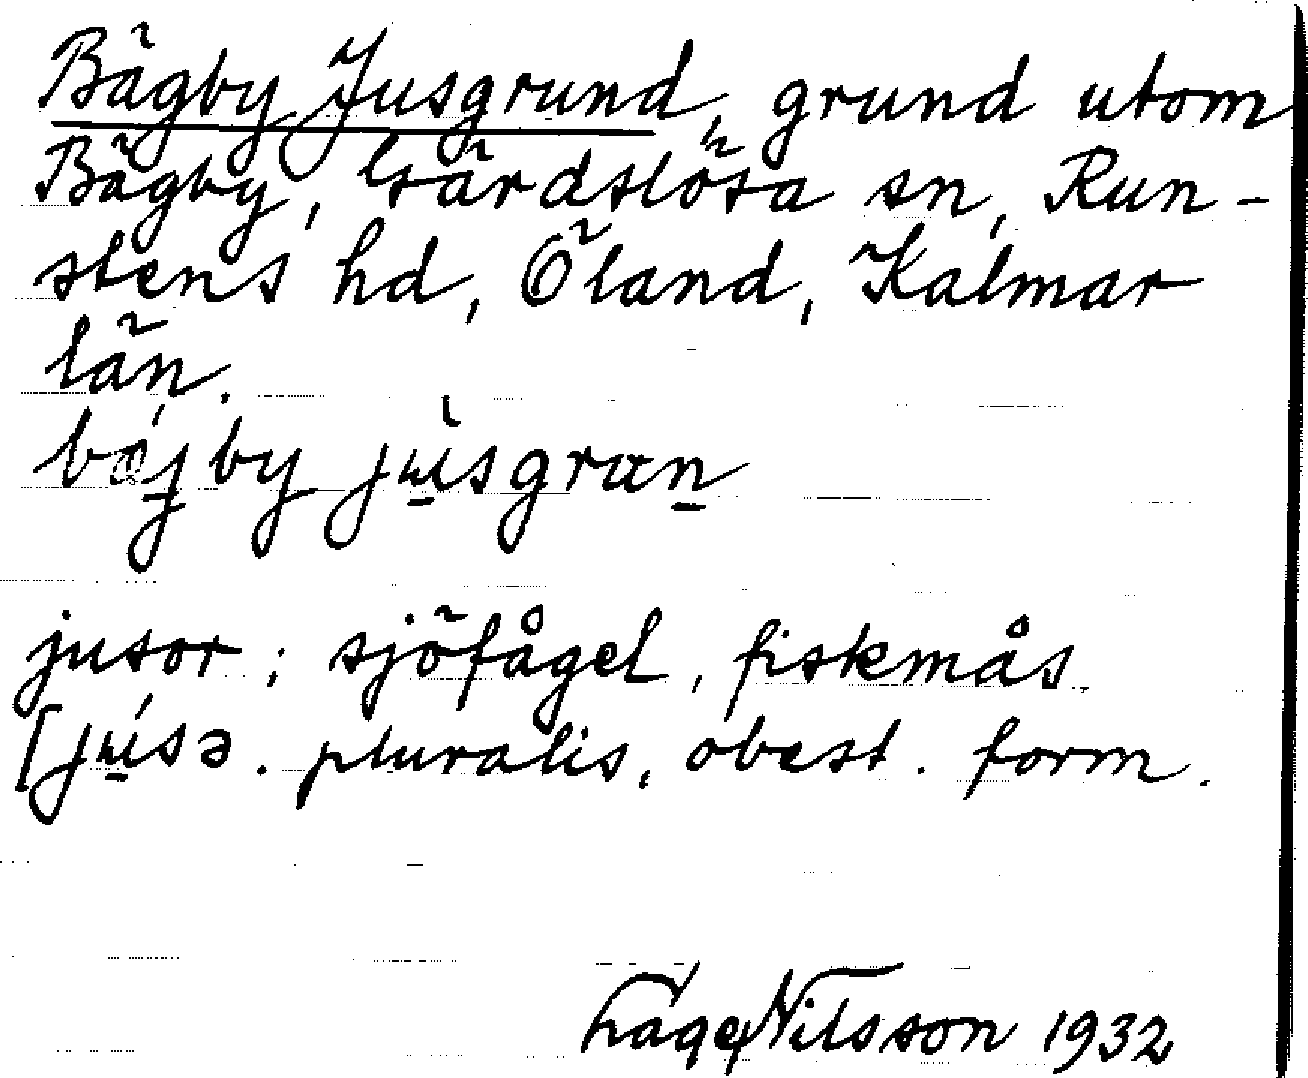 Bägby Jusgrund, grund utom
Bägby, Gärdslösa sn, Run-
stens hd, Öland, Kalmar
län.
jusor; sjöfågel, fiskmås
pluralis, obest. form.
Nilsson 1932